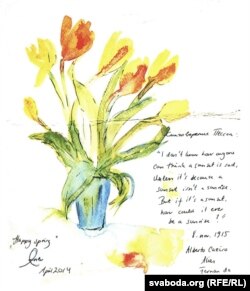 "I don't know how anyone
can think a sunset is sad,
Unless it's because a
sunset isn't a sunrise
But if it's a sunset,
how could it ever
be a sunrise?"
8. nov. 1915
Alberto Caeiro
"Happy spring"
April 2014
svaboda.org (RFE/RL)